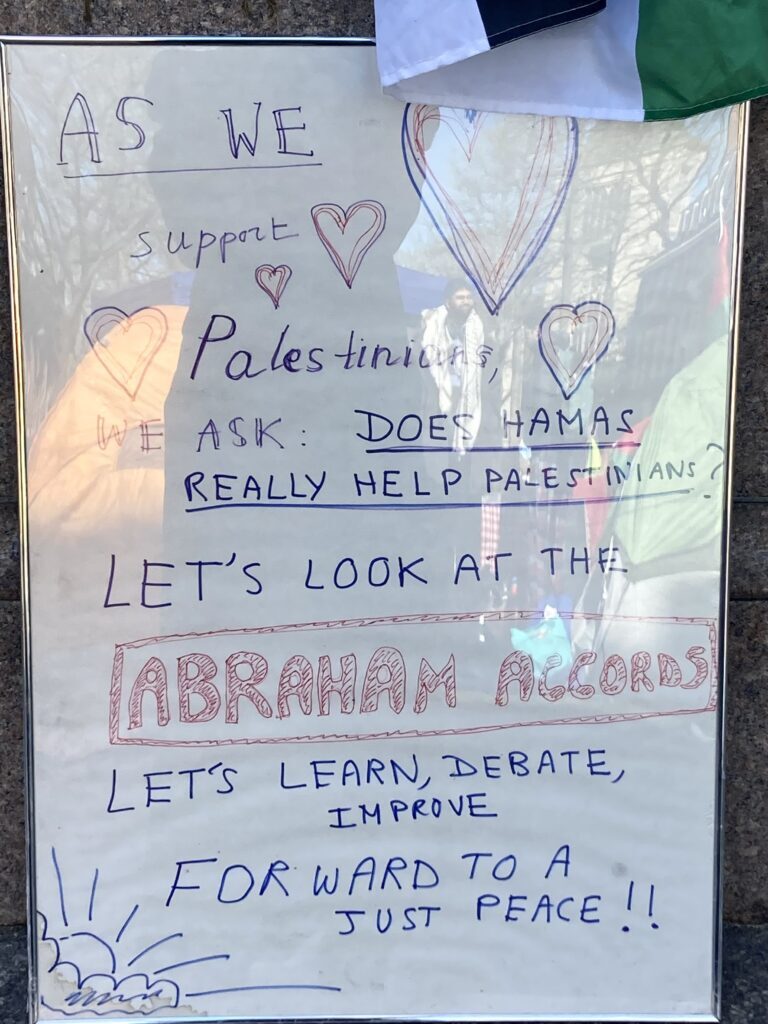 AS WE
support
Palestinians,
WE ASK: DOES HAMAS
REALLY HELP PALESTINIANS?
LET'S LOOK AT THE
ABRAHAM ACCORDS
LET'S LEARN, DEBATE,
IMPROVE
FORWARD TO A
JUST PEACE!!